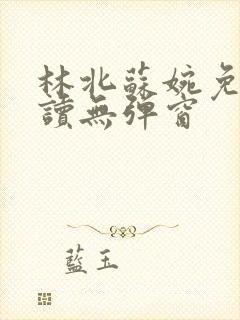 林北蘇婉免
讀無彈窗
藍玉